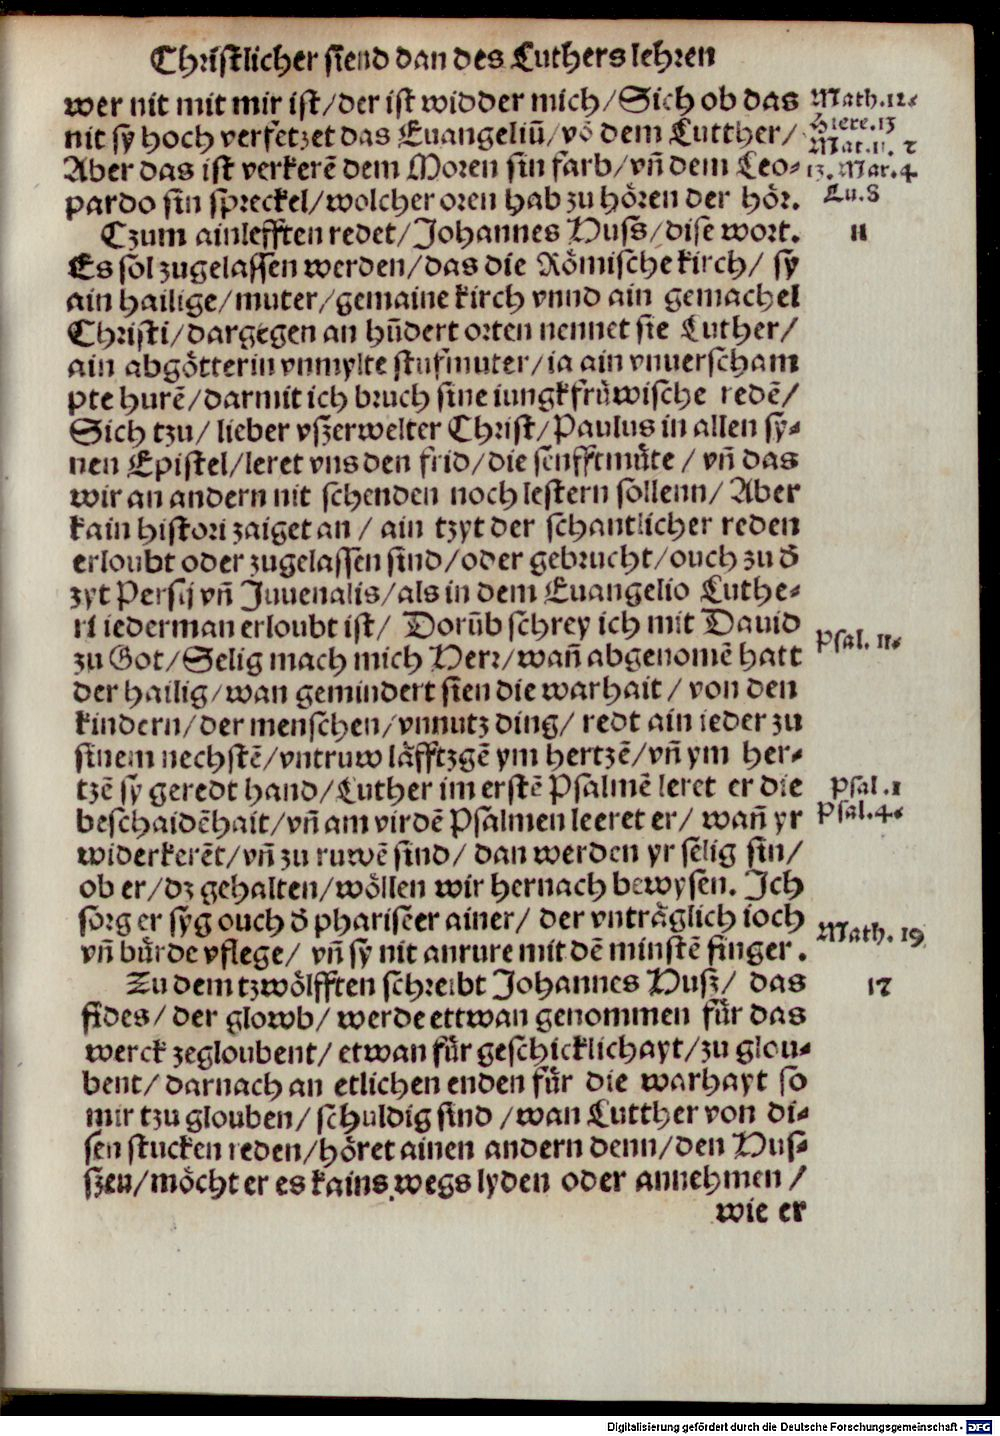 Christlicher siend dan des Luthers lehren
wer nit mit mir ist/der ist widder mich/Sich ob das
Math.12.
nit sy hoch verfetzet das Euangeliū/vō dem Lutther/
Hiere.13
Mat.11. z
Aber das ist verkerē dem Moren sin farb/vn̄ dem Leo-
13. Mar.4
pardo sin spreckel/wolcher oren hab zu hören der hör.
Lu.8
Czum ainlefften redet/Johannes Huss/dise wort.
11
Es sol zugelassen werden/das die Römische kirch/ sy
ain hailige/muter/gemaine kirch vnnd ain gemachel
Christi/dargegen an hūdert orten nennet sie Luther/
ain abgötterin vnmylte stufmuter/ia ain vnuerscham
pte hurē/darmit ich bruch sine iungkfrůwische redē/
Sich tzu/ lieber vszerwelter Christ/Paulus in allen sy-
nen Epistel/leret vns den frid/die senfftmůte / vn̄ das
wir an andern nit schenden noch lestern sollenn/ Aber
kain histori zaiget an / ain tzyt der schantlicher reden
erloubt oder zugelassen sind/oder gebrucht/ouch zu d̄
zyt Persij vn̄ Juuenalis/als in dem Euangelio Luthe-
ri iederman erloubt ist/ Dorūb schrey ich mit Dauid
zu Got/Selig mach mich Herr/wan̄ abgenomē hatt
Psal. 11.
der hailig/wan gemindert sien die warhait / von den
kindern/der menschen/vnnutz ding/ redt ain ieder zu
sinem nechstē/vntruw läfftzgē ym hertzē/vn̄ ym her-
tzē sy geredt hand/Luther im erstē Psalmē leret er die
Psal.1
beschaidēhait/vn̄ am virdē Psalmen leeret er/ wan̄ yr
Psal.4.
widerkerēt/vn̄ zu ruwē sind/ dan werden yr sēlig sin/
ob er/dz gehalten/wöllen wir hernach bewysen. Ich
sorg er syg ouch d̄ phariseer ainer/ der vnträglich ioch
Math. 19
vn̄ bürde vflege/ vn̄ sy nit anrure mit dē minstē finger.
Zu dem tzwölfften schreibt Johannes Husz/ das
12
fides/ der glowb/ werde ettwan genommen für das
werck zegloubent/ etwan für geschicklichayt/zu glou-
bent/ darnach an etlichen enden für die warhayt so
mir tzu glouben/ schuldig sind /wan Lutther von di-
sen stucken reden/höret ainen andern denn/den Hus-
szen/möcht er es kains wegs lyden oder annehmen /
wie er
Digitalisierung gefördert durch die Deutsche Forschungsgemeinschaft - DFG